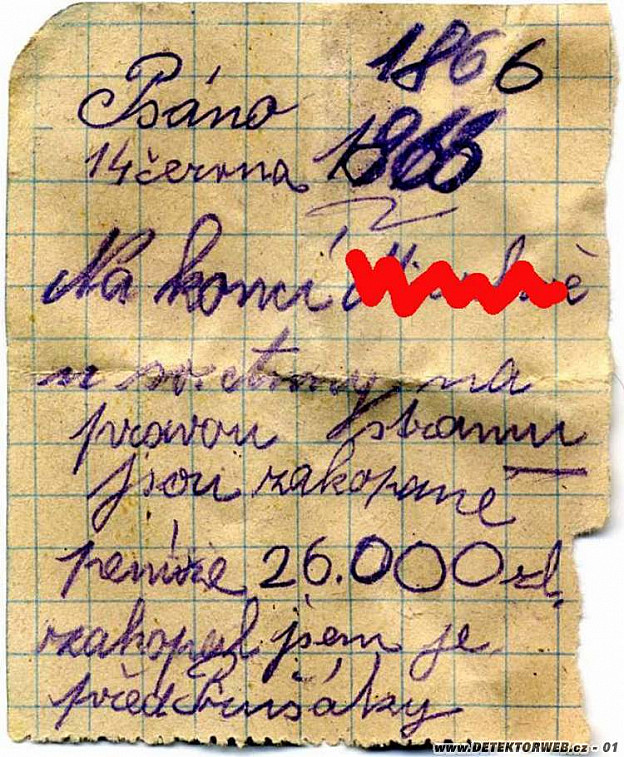 1866
Psáno
14 června 1866
Na konci
na
pravou stranu
jsou zakopané
peníze 26.000 zl.
zakopal jsem je
před Prušáky
www.DETEKTORWEB.cz - 01